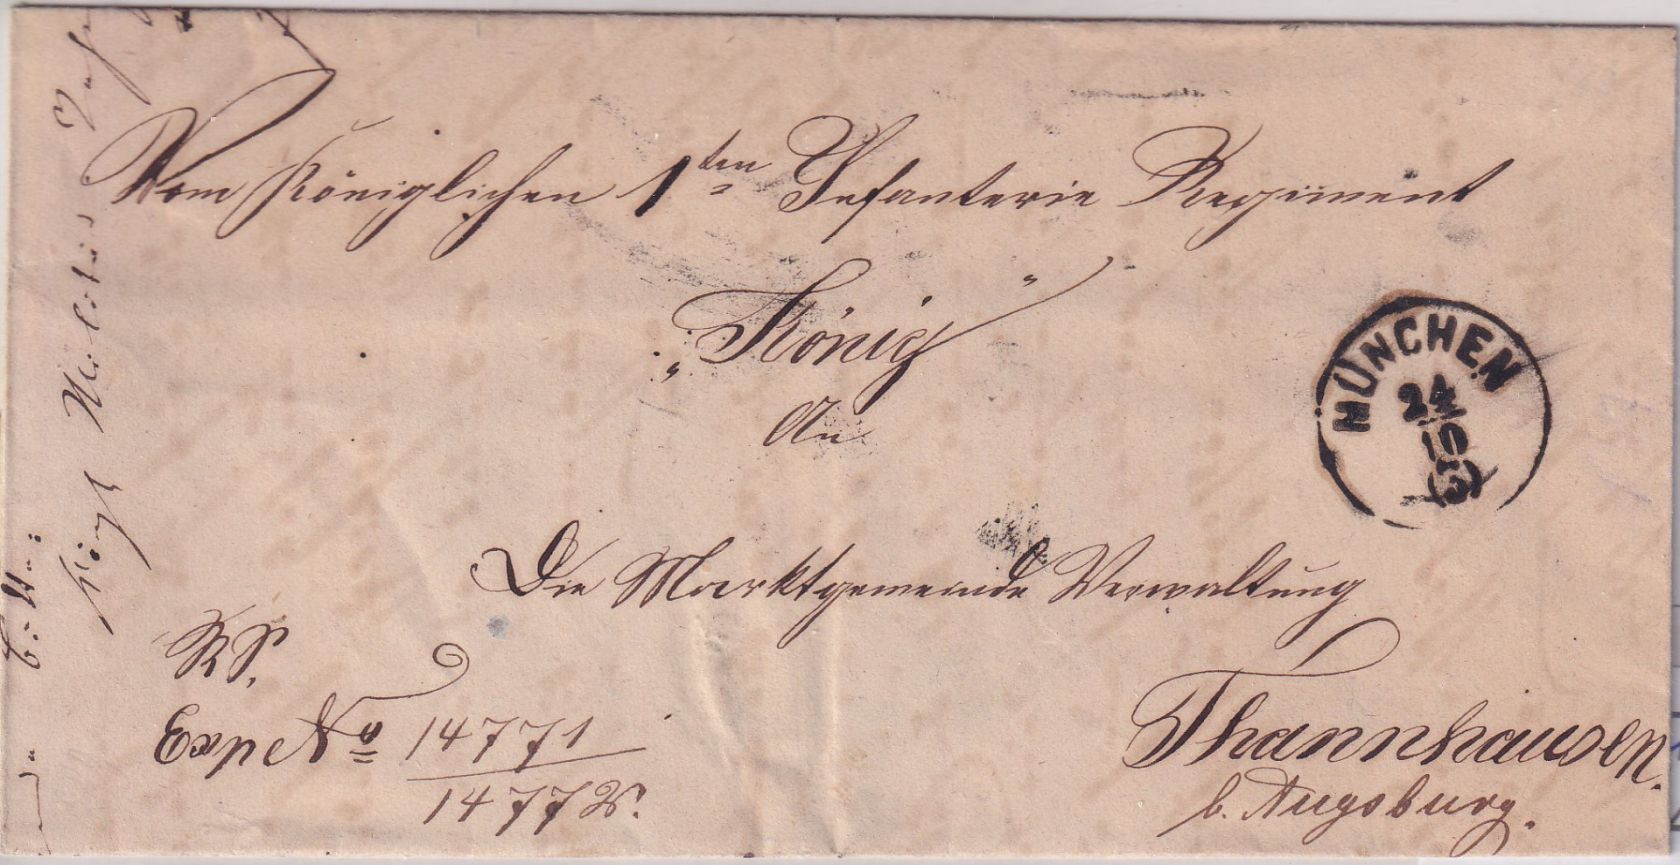 Vom Königlichen 1ten Infanterie Regiment
„König"
An
Die Marktgemeinde Verwaltung
Thannhausen.
b. Augsburg.
RS.
Expe No 14771
1477
MÜNCHEN
24
10
(5)
Königl Militär